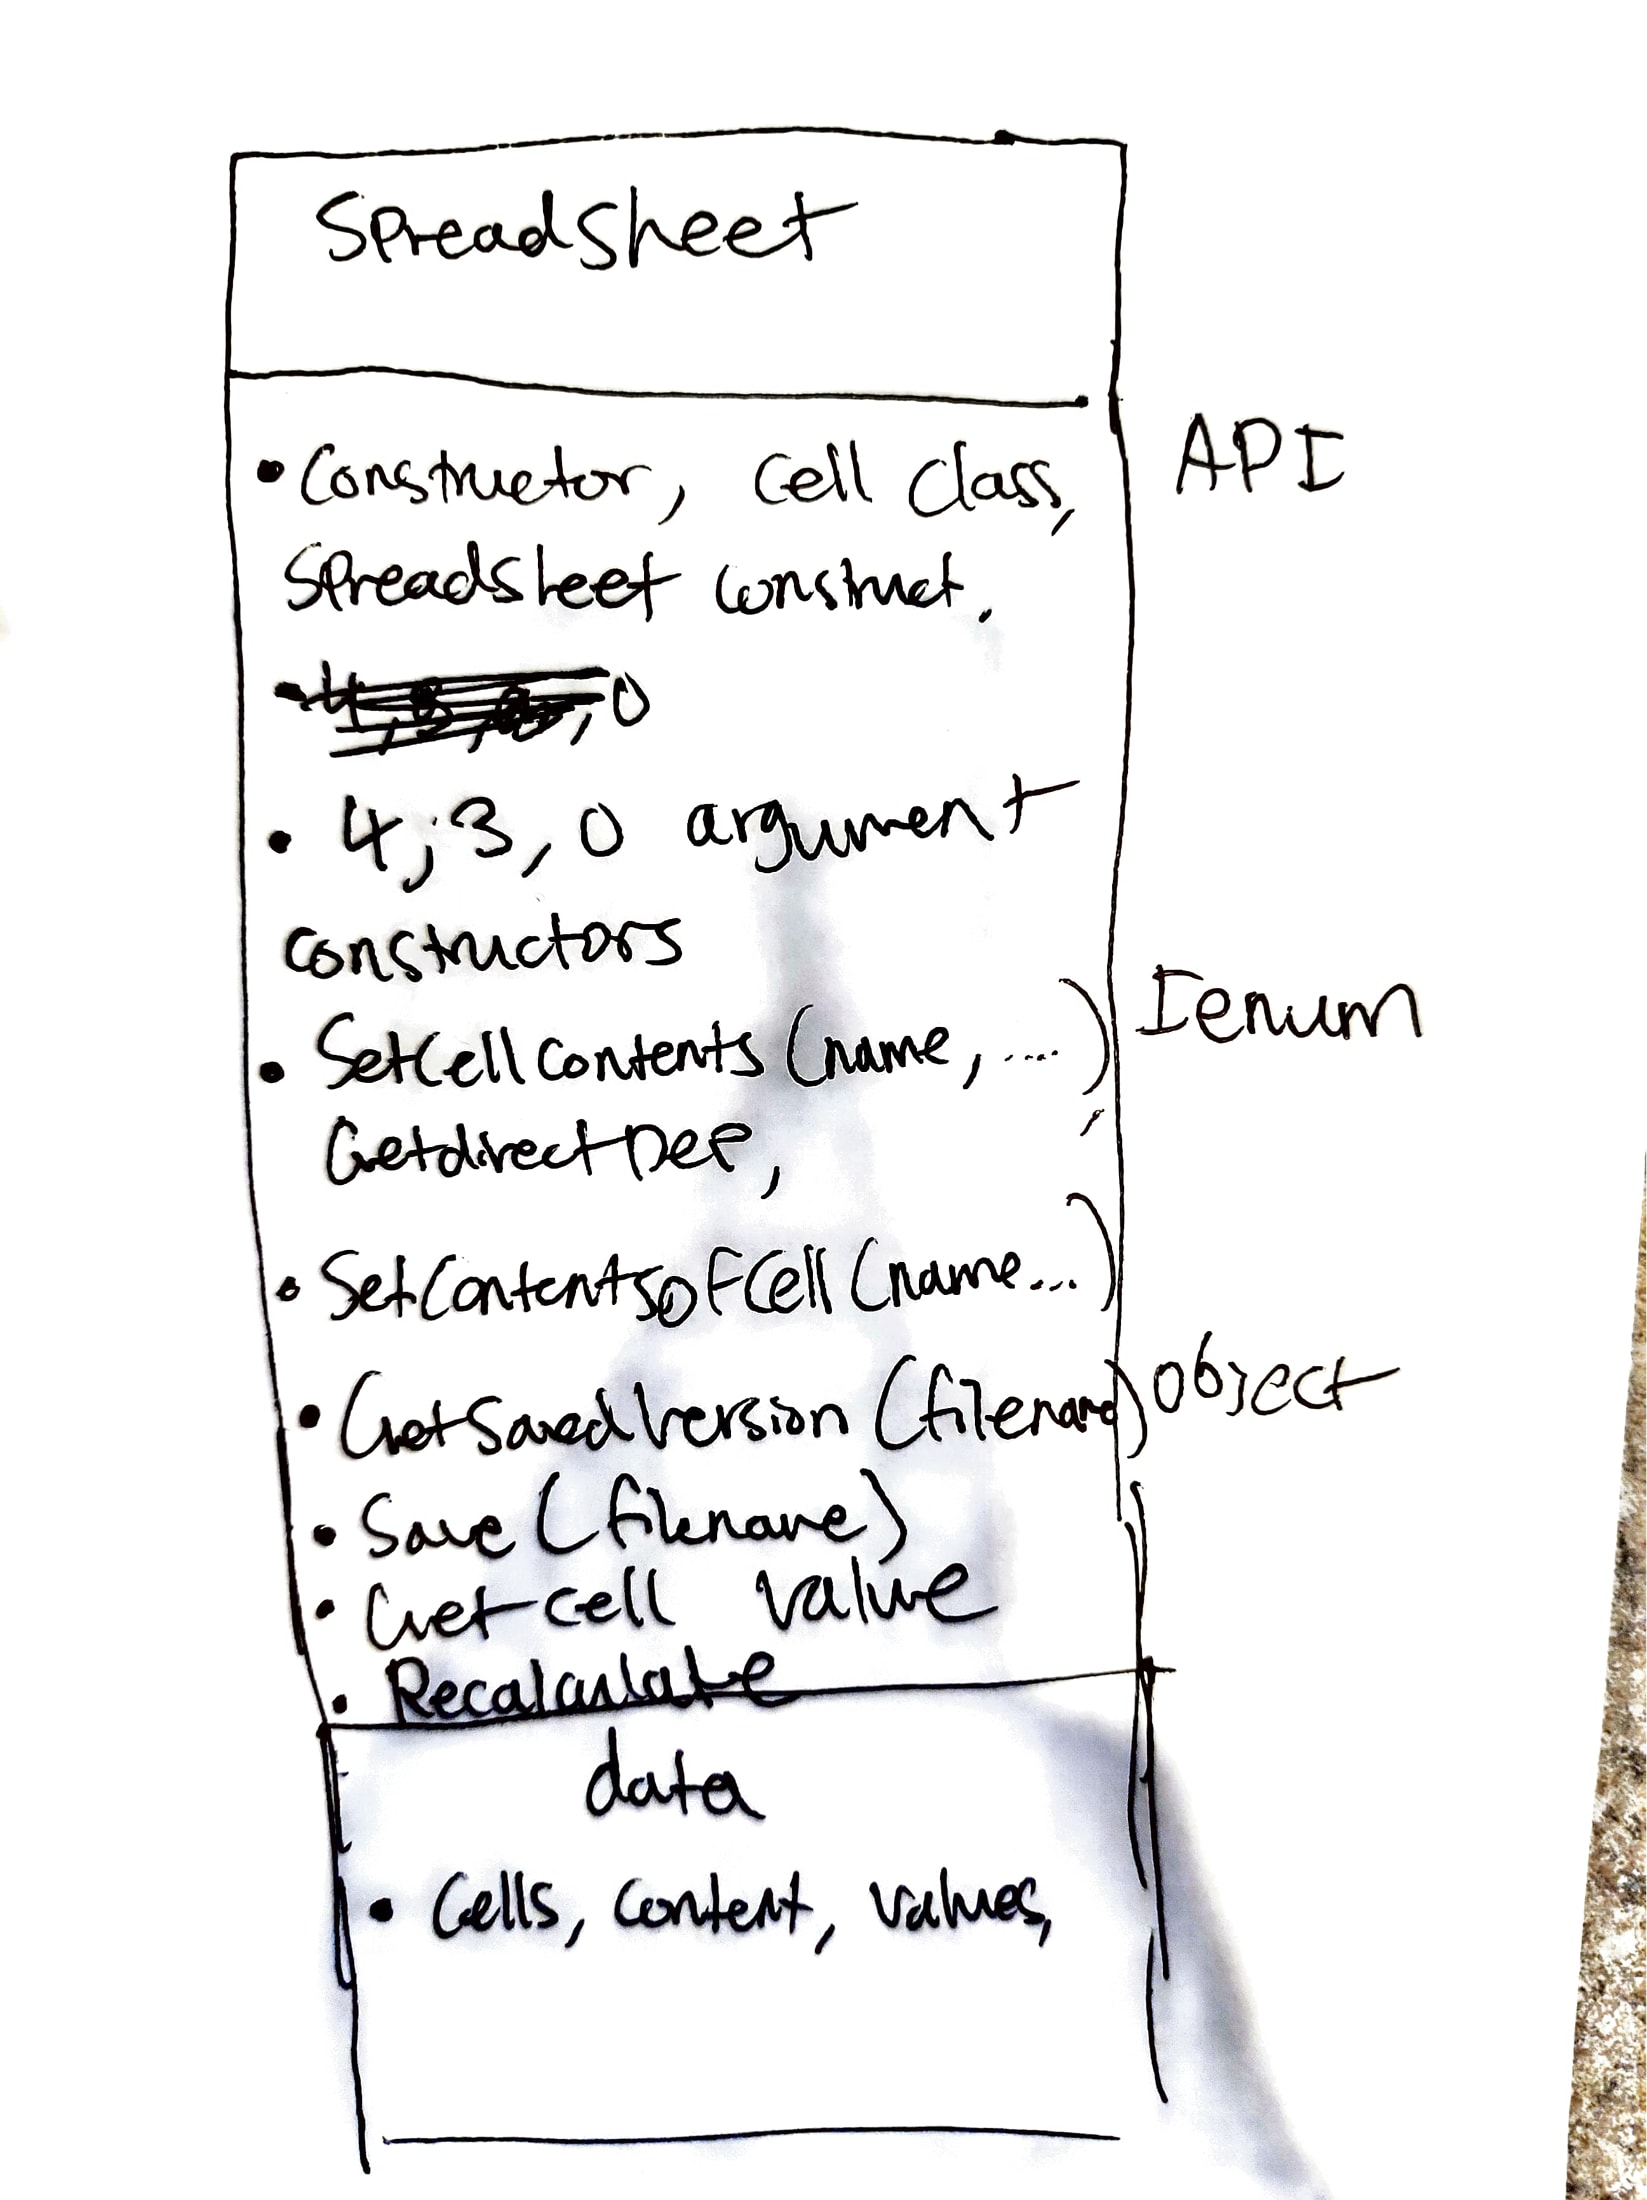 Spreadsheet
• Constructor, Cell Class, API
Spreadsheet construct.
• , 0
• 4, 3, 0 argument
constructors
• SetCellContents (name, ....) Ienum
GetdirectDep,
• SetContentsOFCell (name...)
• GetSavedVersion (filename) object
• Save (filename)
• Get cell value
• Recalculate
data
• Cells, content, values,